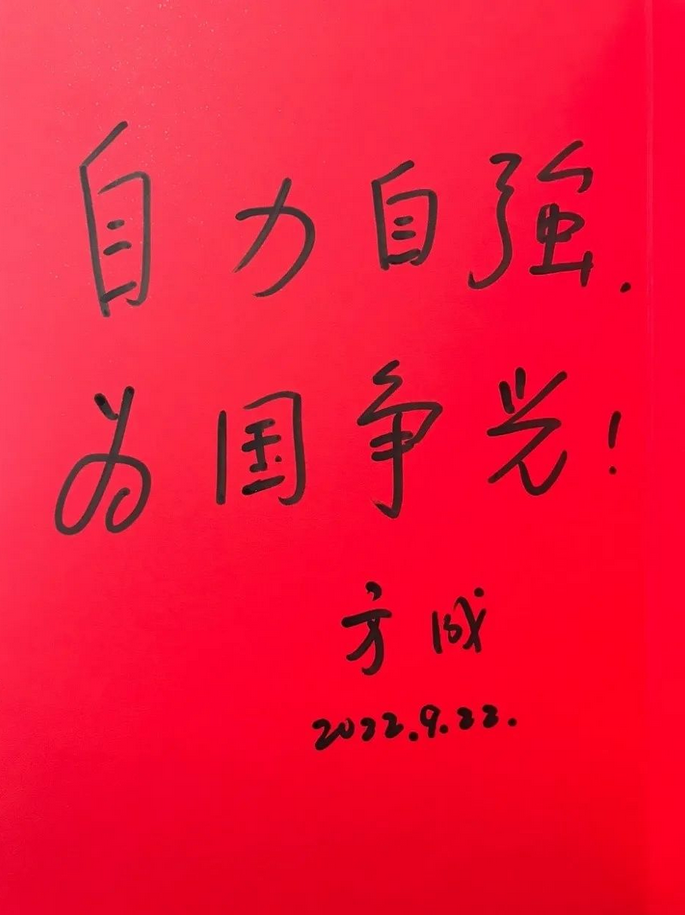 自力自強.
为国争光!
方成
2022.9.22.